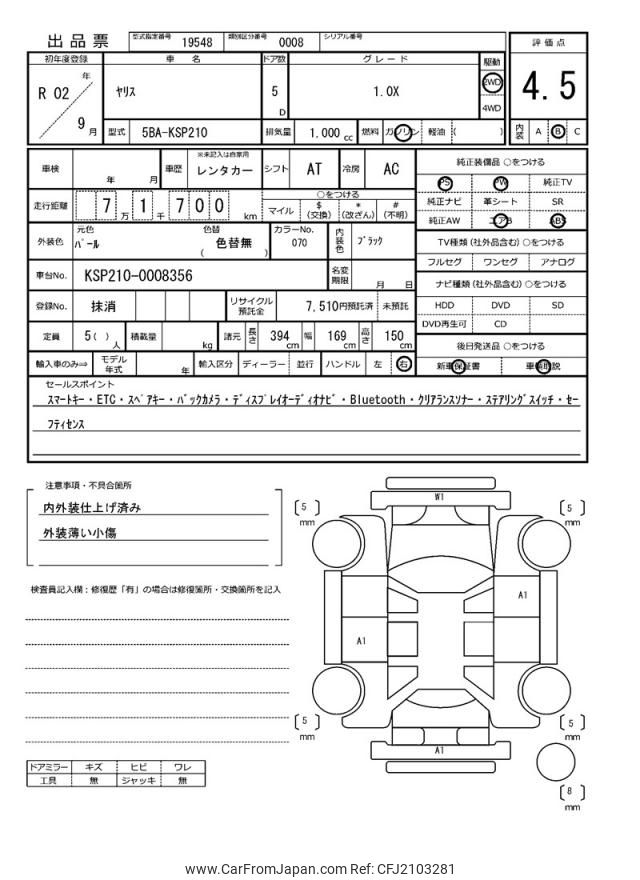 出品票 型式指定番号 19548 類別区分番号 0008 シリアル番号
評価点
4.5
内装 A B C
初年度登録 車 名 ドア数 グレード 駆動
R 02 年 9 月 ヤリス 5 D 1.0X 2WD 4WD
型式 5BA-KSP210 排気量 1.000 cc 燃料 ガソリン 軽油 ( )
車検 年 月 車歴 ※未記入は自家用 レンタカー シフト AT 冷房 AC
走行距離 7 万 1 千 7 0 0 km ○をつける
マイル $ (交換) * (改ざん) # (不明)
外装色 元色 パール 色替 色替無 ( ) カラーNo. 070 内装色 ブラック
車台No. KSP210-0008356 名変期限 月 日
登録No. 抹消 リサイクル預託金 7,510円預託済 未預託
定員 5( ) 人 積載量 kg 諸元 長さ 394 cm 幅 169 cm 高さ 150 cm
輸入車のみ⇒ モデル年式 年 輸入区分 ディーラー 並行 ハンドル 左 右
純正装備品 ○をつける
PS PW 純正TV
純正ナビ 革シート SR
純正AW エアB ABS
TV種類 (社外品含む) ○をつける
フルセグ ワンセグ アナログ
ナビ種類 (社外品含む) ○をつける
HDD DVD SD
DVD再生可 CD
後日発送品 ○をつける
新車保証書 車輌取説
セールスポイント
スマートキー・ETC・スペアキー・バックカメラ・ディスプレイオーディオナビ・Bluetooth・クリアランスソナー・ステアリングスイッチ・セー
フティセンス
注意事項・不具合箇所
内外装仕上げ済み
外装薄い小傷
検査員記入欄：修復歴「有」の場合は修復箇所・交換箇所を記入
ドアミラー キズ ヒビ ワレ
工具 無 ジャッキ 無
W1
[5] mm
[5] mm
A1
A1
[5] mm
[5] mm
A1
[8] mm
www.CarFromJapan.com Ref: CFJ2103281